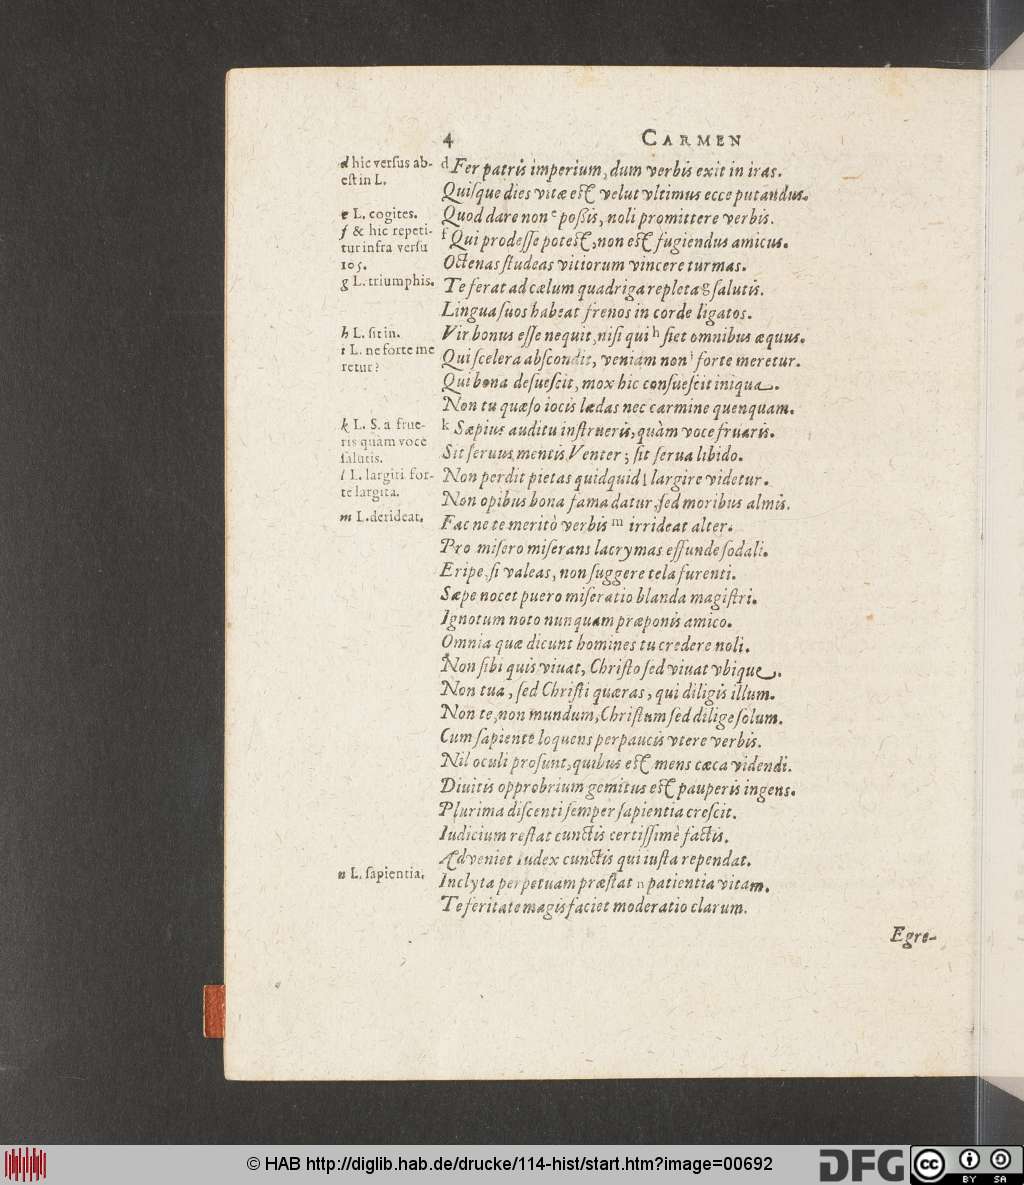 4 CARMEN
d hic versus ab-
est in L.
e L. cogites.
f & hic repeti-
tur infra versu
105.
g L. triumphis.
h L. sit in.
i L. ne forte me
retur?
k L. S. a frue-
ris quàm voce
salutis.
l L. largiri for-
te largita.
m L. derideat.
n L. sapientia.
d Fer patris imperium, dum verbis exit in iras.
Quisque dies vitæ est velut vltimus ecce putandus.
Quod dare non e poßis, noli promittere verbis.
f Qui prodesse potest, non est fugiendus amicus.
Octenas studeas vitiorum vincere turmas.
Te ferat ad cælum quadriga repleta g salutis.
Lingua suos habeat frenos in corde ligatos.
Vir bonus esse nequit, nisi qui h siet omnibus æquus.
Qui scelera abscondit, veniam non i forte meretur.
Qui bona desuescit, mox hic consuescit iniqua.
Non tu quæso iocis lædas nec carmine quenquam.
k Sæpius auditu instrueris, quàm voce fruaris.
Sit seruus mentis Venter; sit serua libido.
Non perdit pietas quidquid l largire videtur.
Non opibus bona fama datur, sed moribus almis.
Fac ne te meritò verbis m irrideat alter.
Pro misero miserans lacrymas effunde sodali.
Eripe, si valeas, non suggere tela furenti.
Sæpe nocet puero miseratio blanda magistri.
Ignotum noto nunquam præponis amico.
Omnia quæ dicunt homines tu credere noli.
Non sibi quis viuat, Christo sed viuat vbique.
Non tua, sed Christi quæras, qui diligis illum.
Non te, non mundum, Christum sed dilige solum.
Cum sapiente loquens perpaucis vtere verbis.
Nil oculi prosunt, quibus est mens cæca videndi.
Diuitis opprobrium gemitus est pauperis ingens.
Plurima discenti semper sapientia crescit.
Iudicium restat cunctis certissimè factis.
Adveniet Iudex cunctis qui iusta rependat.
Inclyta perpetuam præstat n patientia vitam.
Te feritate magis faciet moderatio clarum.
Egre-
© HAB http://diglib.hab.de/drucke/114-hist/start.htm?image=00692
DFG
cc BY SA